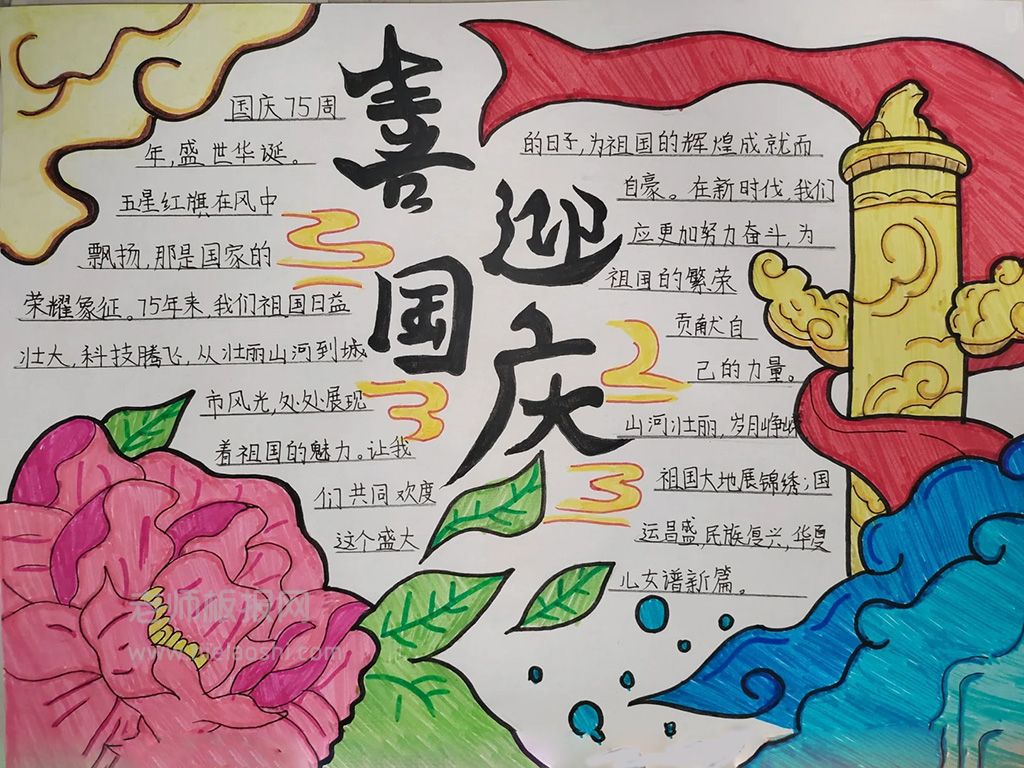 喜迎国庆
国庆75周
年,盛世华诞。
五星红旗在风中
飘扬,那是国家的
荣耀象征。75年来,我们祖国日益
壮大,科技腾飞,从壮丽山河到城
市风光,处处展现
着祖国的魅力。让我
们共同欢度
这个盛大
的日子,为祖国的辉煌成就而
自豪。在新时代,我们
应更加努力奋斗,为
祖国的繁荣
贡献自
己的力量。
山河壮丽,岁月峥嵘
祖国大地展锦绣;国
运昌盛,民族复兴,华夏
儿女谱新篇。
老师板报网